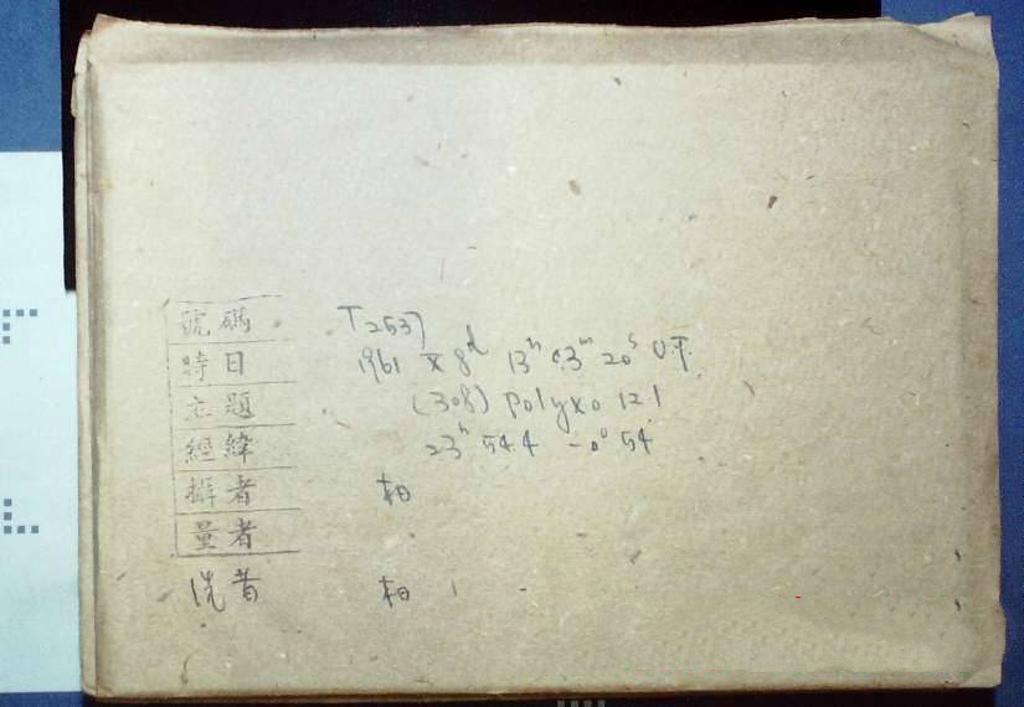 號碼 T2537
時日 1961 X 8d 13h 03m 20s U.T.
主題 (308) Polyxo 12.1
經緯 23h 54.4 -0° 54
攝者 柏
量者
洗者 柏